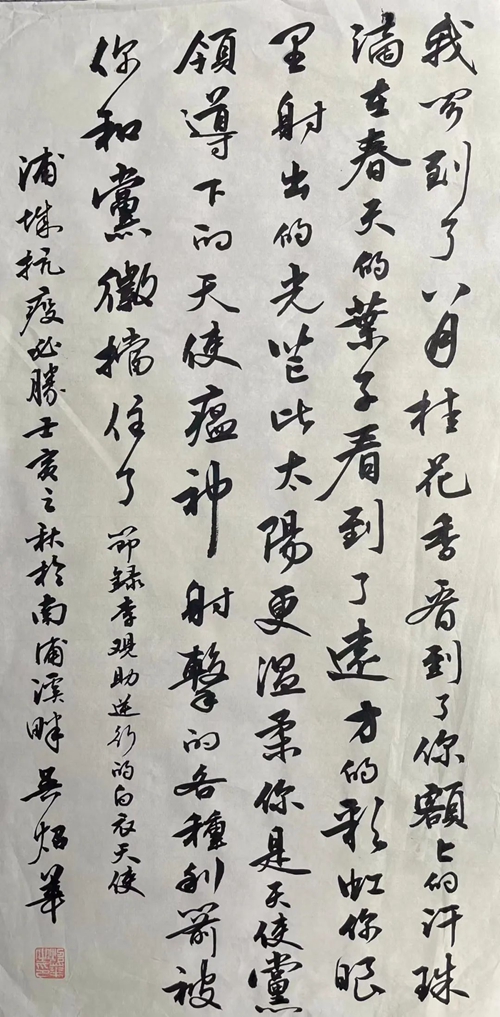 我闻到了八月桂花香看到了你额上的汗珠
滴在春天的葉子看到了遠方的彩虹你眼
里射出的光芒比太陽更温柔你是天使黨
領導下的天使瘟神射擊的各種利箭被
你和黨徽擋住了
節録李观助逆行的白衣天使
浦城抗疫必勝壬寅之秋於南浦溪畔吴炤華